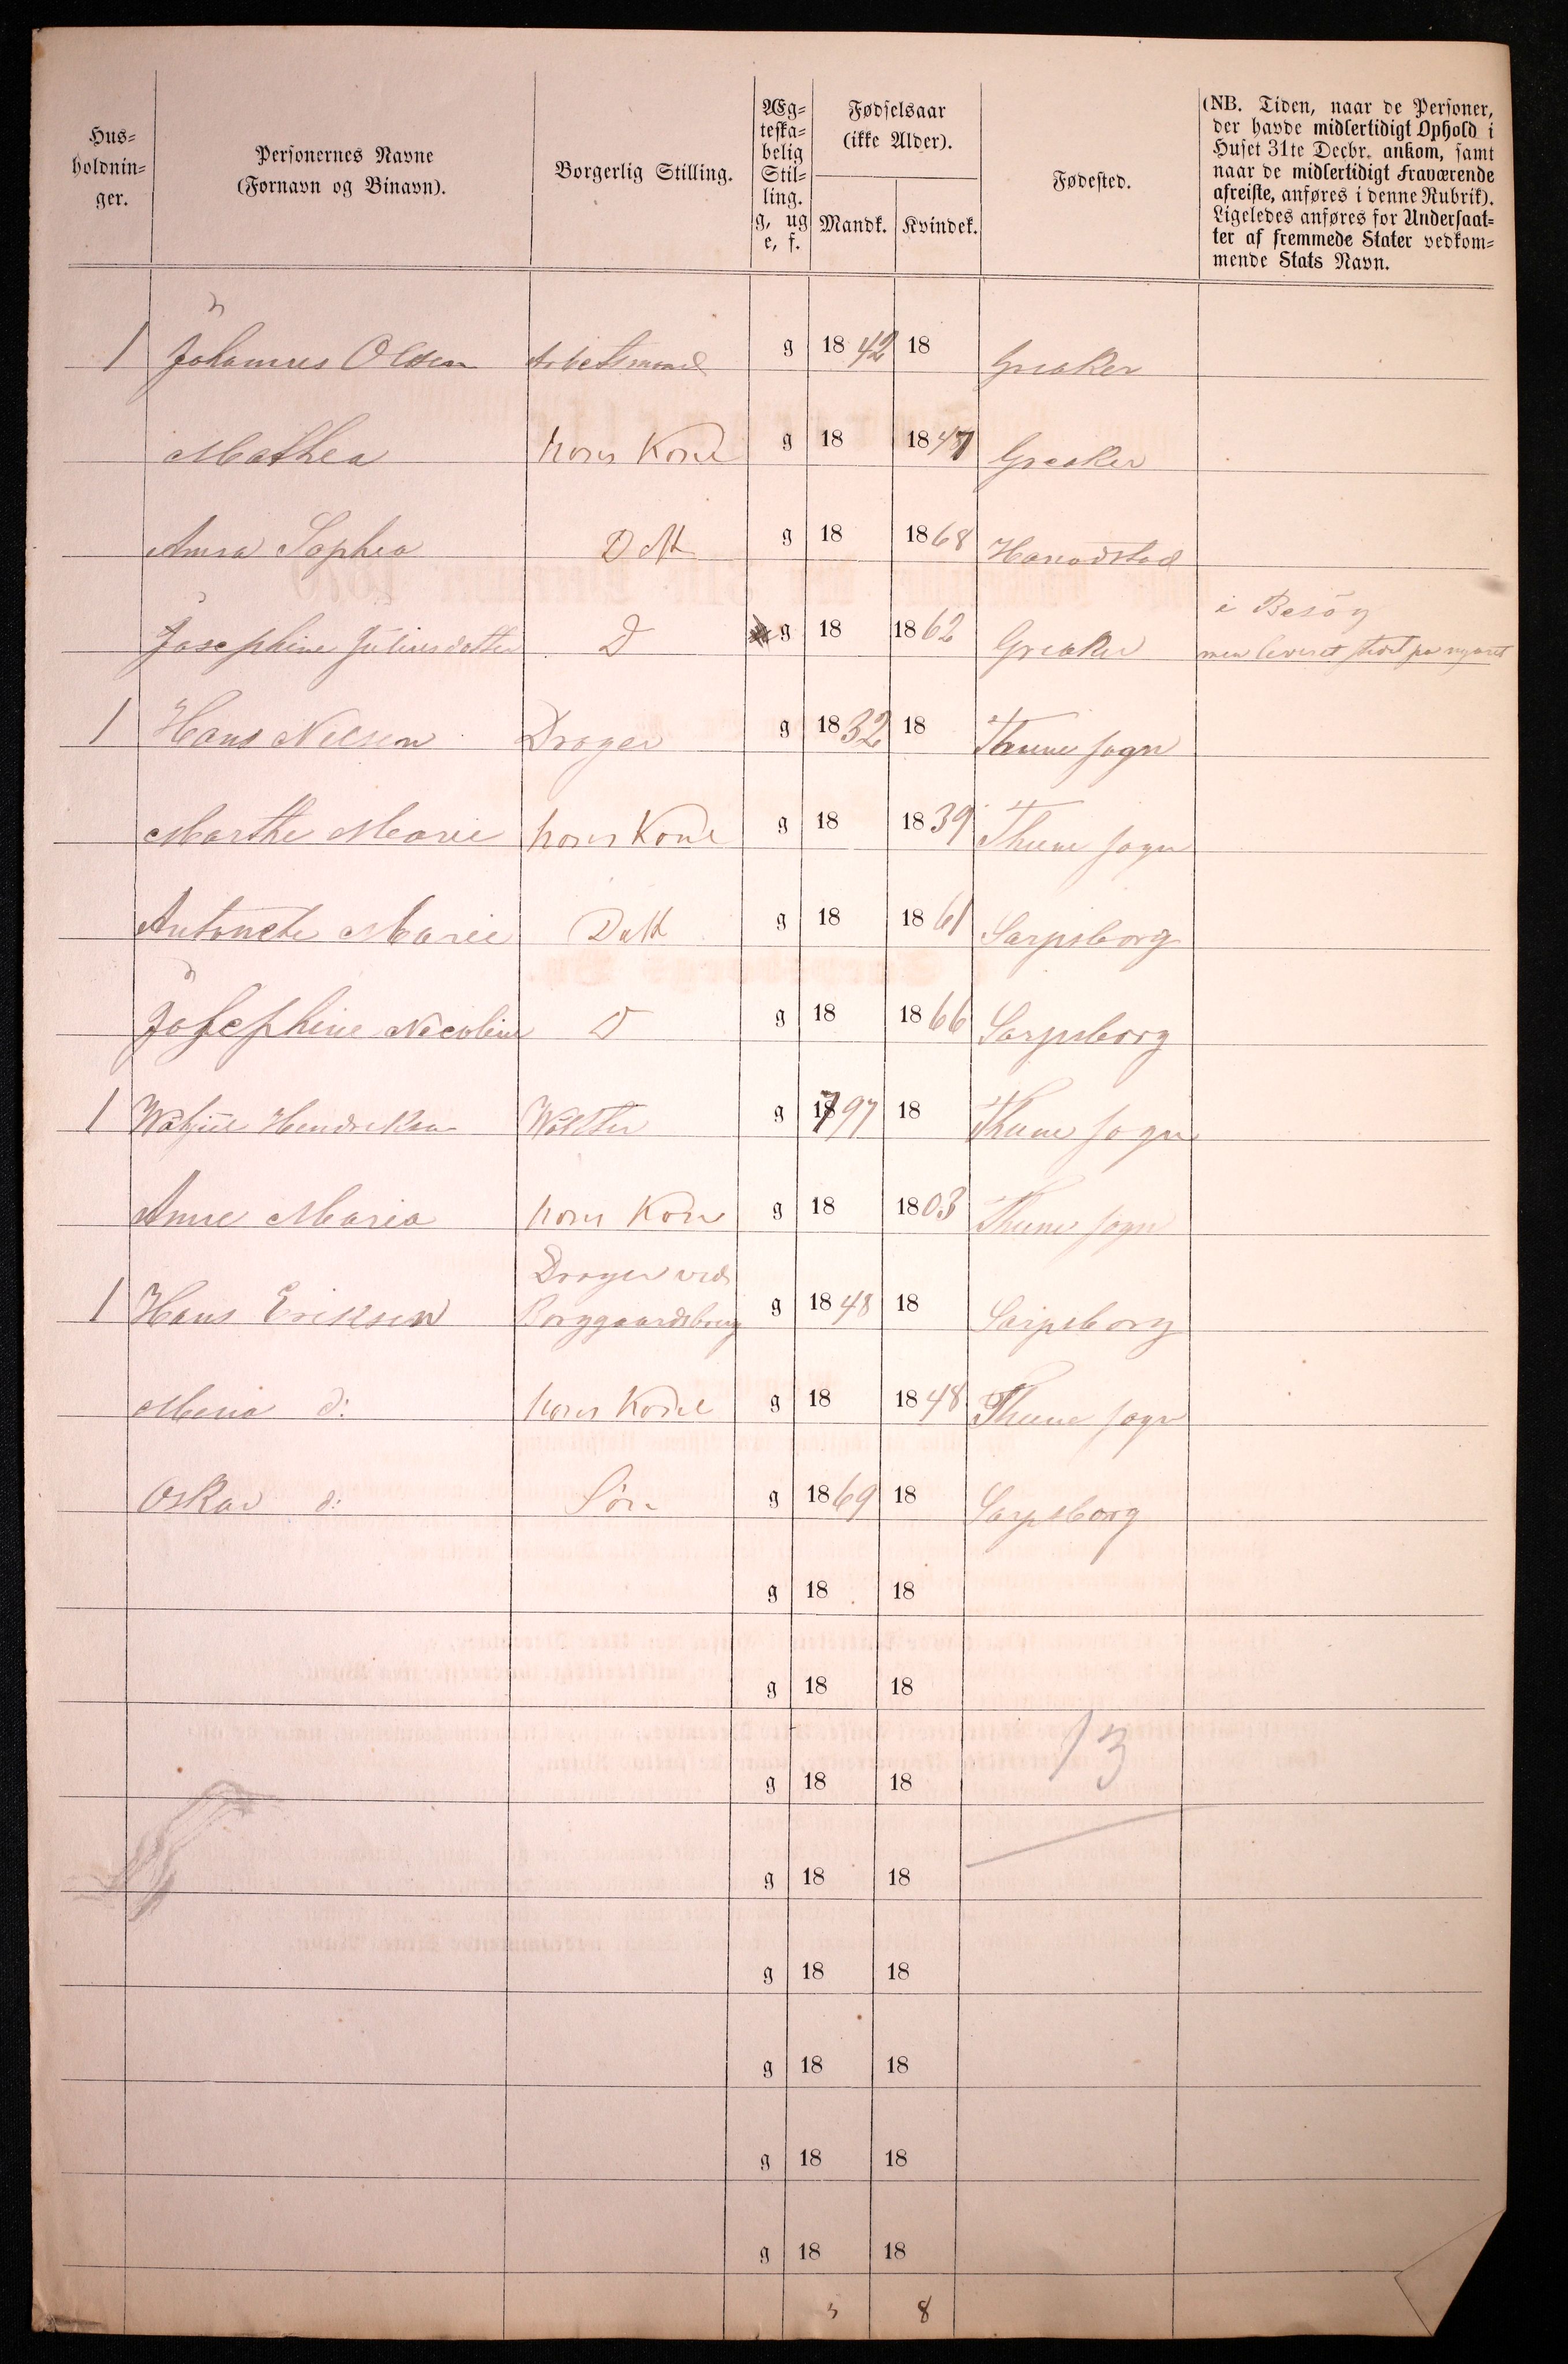 Hus=
holdnin=
ger.
Personernes Navne
(Fornavn og Binavn).
Borgerlig Stilling.
Æg=
teska=
belig
Stil=
ling.
g, ug
e, f.
Fødselsaar
(ikke Alder).
Mandk. Kvindek.
Fødested.
(NB. Tiden, naar de Personer,
der havde midlertidigt Ophold i
Huset 31te Decbr. ankom, samt
naar de midlertidigt Fraværende
afreiste, anføres i denne Rubrik).
Ligeledes anføres for Undersaat=
ter af fremmede Stater vedkom=
mende Stats Navn.
1 Johannes Olsen Arbetsmand g 1842 18 Greaker
Mathea hans Kone g 18 1847 Greaker
Anna Sophea Datt g 18 1868
i Besög
Josephine Juliusdatter D g 18 1862 Greaker men
1 Hans Nielsen Drager g 1832 18 Thune sogn
Marthe Marie hans Kone g 18 1839 Thune sogn
Antonete Marie Datt g 18 1861 Sarpsborg
Josephine Nicoline D g 18 1866 Sarpsborg
1 Hendriksen g 1797 18 Thune sogn
Anne Maria hans Kone g 18 1803 Thune sogn
Drager ved
1 Hans Eriksen Borggaardsbrug g 1848 18 Sarpsborg
Maria d: hans Kone g 18 1848 Thune sogn
Oskar d: Sön g 1869 18 Sarpsborg
g 18 18
g 18 18
13
g 18 18
g 18 18
g 18 18
g 18 18
g 18 18
g 18 18
5 8